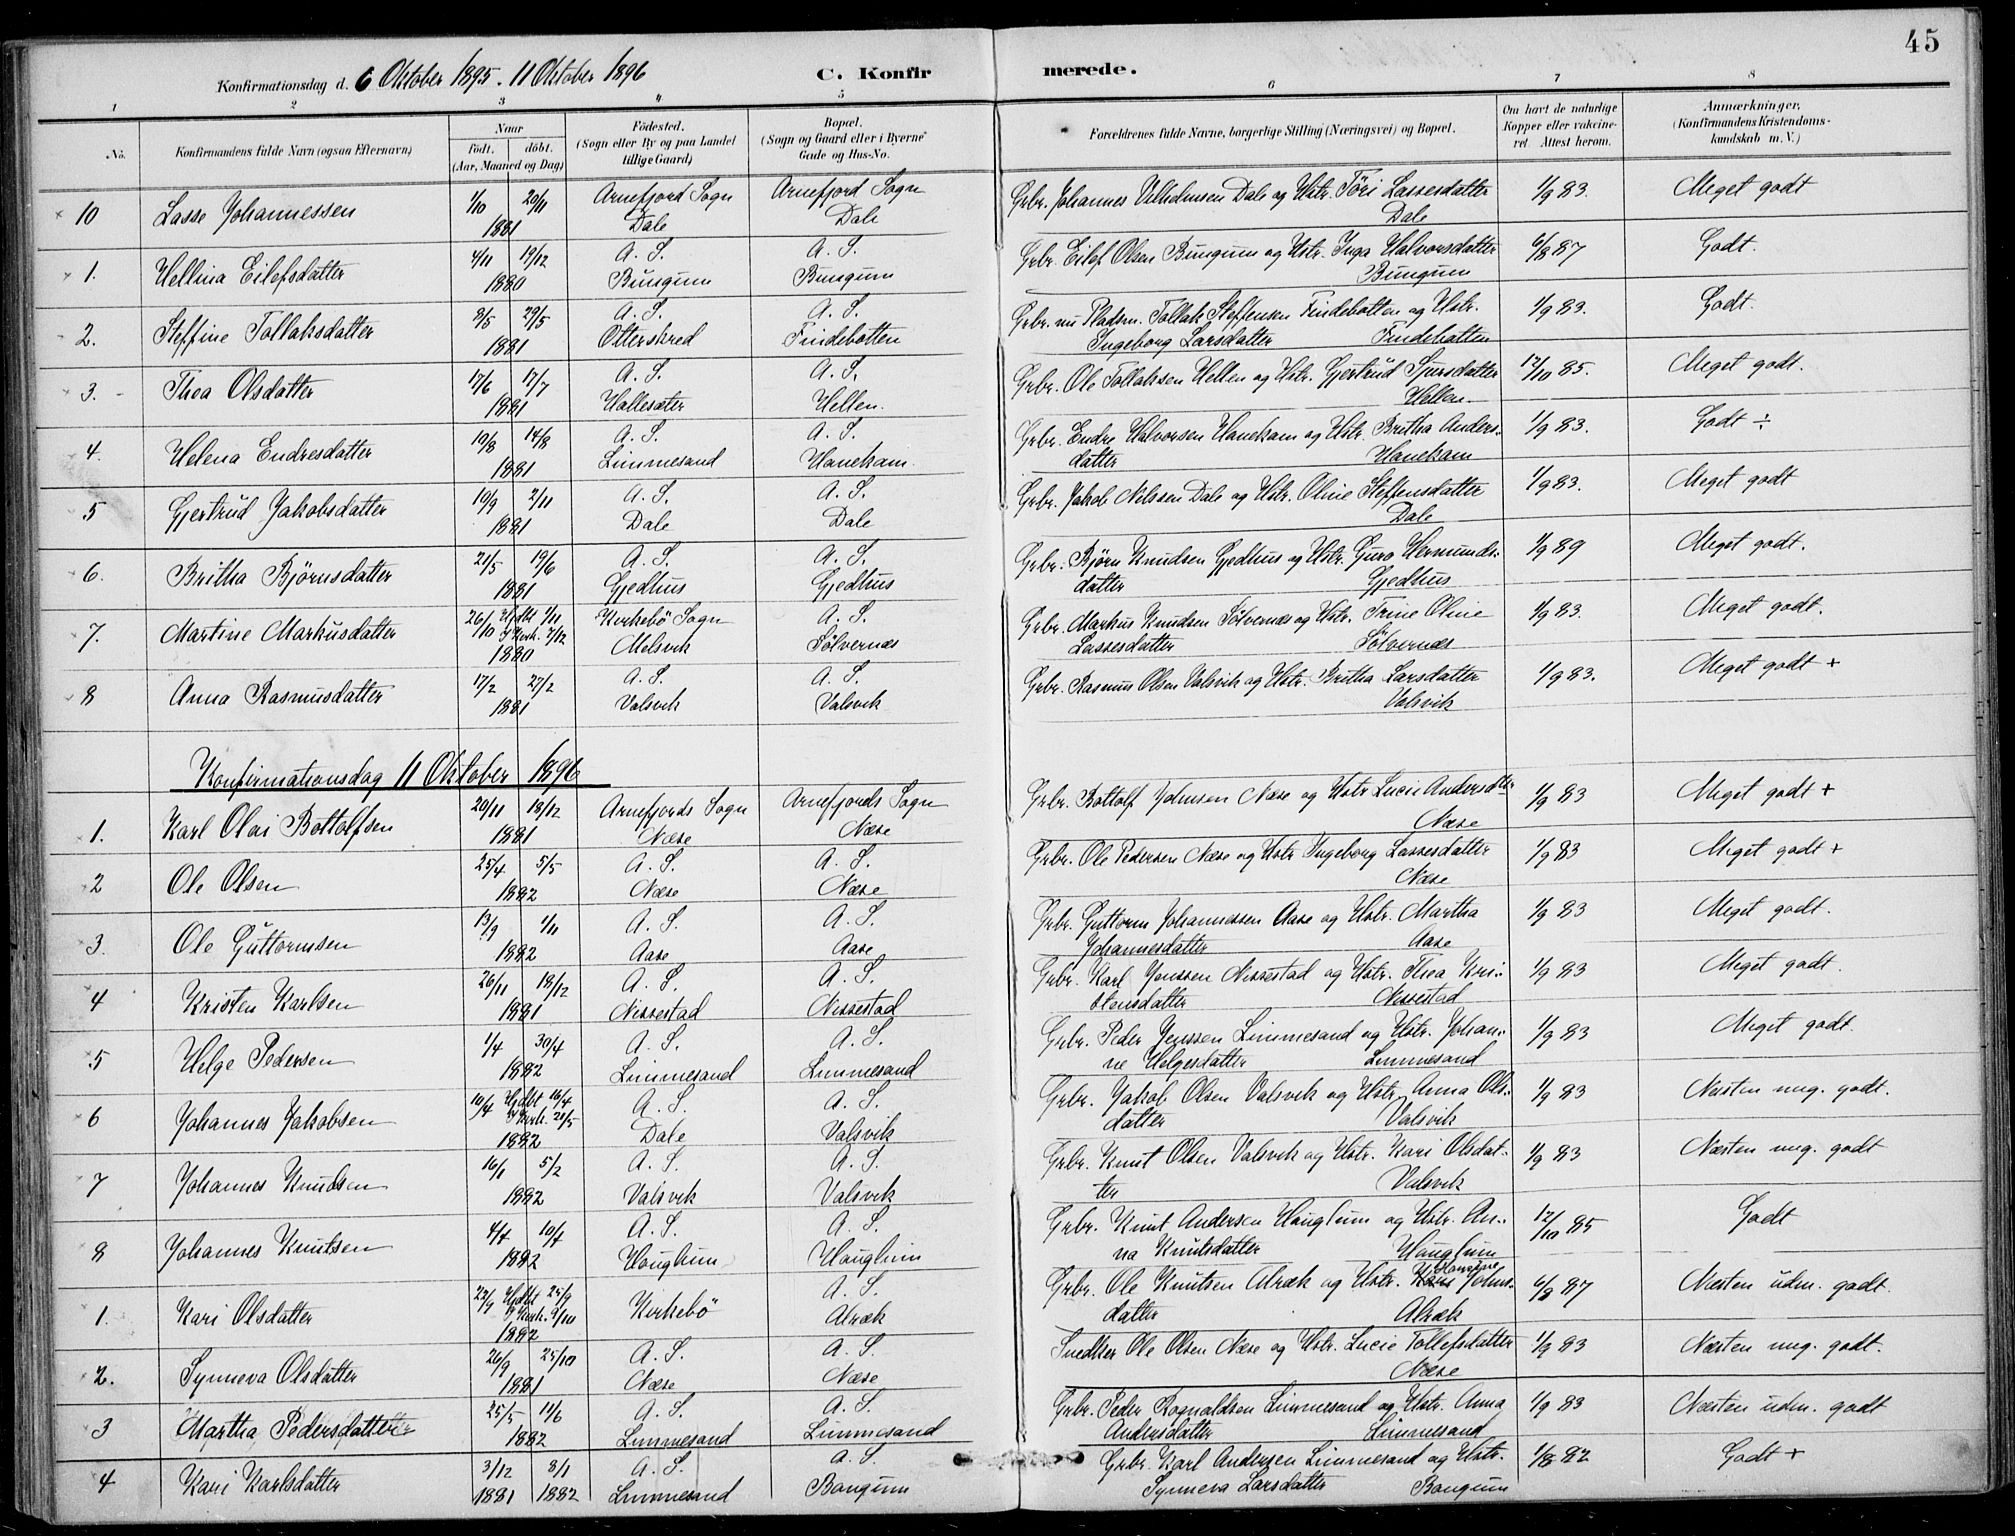 45
Konfirmationsdag d. 6 Oktober 1895. 11 Oktober 1896 C. Konfirmerede.
1 2 3 4 5 6 7 8
No. Konfirmandens fulde Navn (ogsaa Efternavn) Naar Födt. döbt. (Aar, Maaned og Dag) Födested. (Sogn eller By og paa Landet tillige Gaard) Bopæl. (Sogn og Gaard eller i Byerne Gade og Hus-No. Forældrenes fulde Navne, borgerlige Stilling (Næringsvei) og Bopæl. Om havt de naturlige Kopper eller vakcineret Attest herom. Anmærkninger. (Konfirmandens Kristendomskundskab m. V.)
10 Lasse Johannessen 1/10 20/11 1881 Arnefjord Sogn Dale Arnefjord Sogn Dale Grbr. Johannes Vilhelmsen Dale og Hstr. Töri Lassesdatter Dale 1/9 83. Meget godt
1. Hellina Eilefsdatter 4/11 19/12 1880 A. S. Bungum A. S. Bungum Grbr. Eilef Olsen Bungum og Hstr. Inga Halvorsdatter Bungum 6/8 87 Godt.
2. Steffine Tollaksdatter 8/5 29/5 1881 A. S. Otterskred A. S. Findebotten Grbr. nu Pladsm. Tollak Steffensen Findebotten og Hstr. Ingeborg Larsdatter Findebotten 1/9 83. Godt.
3. Thea Olsdatter 17/6 17/7 1881 A. S. Hallesæter A. S. Hellen. Grbr. Ole Tollaksen Hellen og Hstr. Gjertrud Sjursdatter Hellen 12/10 85. Meget godt.
4. Helena Endresdatter 10/8 14/8 1881 A. S. Limmesand A. S. Hanekam. Grbr. Endre Halvorsen Hanekam og Hstr. Britha Andersdatter Hanekam 1/9 83. Godt ÷
5 Gjertrud Jakobsdatter 19/9 2/11 1881 A. S. Dale A. S. Dale Grbr. Jakob Nilssen Dale og Hstr. Oline Steffensdatter Dale 1/9 83. Meget godt
6. Britha Björnsdatter 21/5 19/6 1881 A. S. Gjedhus A. S. Gjedhus Grbr. Björn Knudsen Gjedhus og Hstr. Guro Hermundsdatter Gjedhus 1/9 89 Meget godt.
7. Martine Markusdatter 26/10 Hjdbt 1/11 I Kirk. 2/12 1880 Kirkebö Sogn Melsvik A. S. Sölvernæs Grbr. Markus Knudsen Sölvernæs og Hstr. Trine Oline Lassesdatter Sölvernæs 1/9 83. Meget godt.
8 Anna Rasmusdatter 17/2 27/2 1881 A. S. Valsvik A. S. Valsvik Grbr. Rasmus Olsen Valsvik og Hstr. Britha Larsdatter Valsvik 1/9 83. Meget godt +
Konfirmationsdag 11 Oktober 1896
1. Karl Olai Bottolfsen 20/11 18/12 1881 Arnefjords Sogn Næse Arnefjords Sogn Næse Grbr. Bottolf Johnsen Næse og Hstr Lucie Andersdtr Næse 1/9 83 Meget godt +
2 Ole Olsen 25/4 5/5 1882 A. S. Næse A. S. Næse Grbr. Ole Pedersen Næse og Hstr Ingeborg Lassesdatter Næse 1/9 83 Meget godt +
3. Ole Guttormsen 13/9 1/11 1882 A. S. Aase A. S. Aase Grbr. Guttorm Johannessen Aase og Hstr. Martha Johannesdatter Aase 1/9 83 Meget godt.
4 Kristen Karlsen 26/11 18/12 1881 A. S. Nissestad A. S. Nissestad Grbr. Karl Jenssen Nissestad og Hstr. Thea Kristensdatter Nissestad 1/9 83 Meget godt.
5 Helge Pedersen 1/4 30/4 1882 A. S. Limmesand A. S. Limmesand Grbr. Peder Jenssen Limmesand og Hstr. Johanne Helgesdatter Limmesand 1/9 83 Meget godt.
6 Johannes Jakobsen 10/4 Hjdbt 16/4 I Kirk. 21/5 1882 A. S. Dale A. S. Valsvik Grbr. Jakob Olsen Valsvik og Hstr. Anna Olsdatter Valsvik 1/9 83 Næsten mg. godt.
7 Johannes Knudsen 16/1 5/2 1882 A. S. Valsvik A. S. Valsvik Grbr. Knut Olsen Valsvik og Hstr. Kari Olsdatter Valsvik 1/9 83 Næsten mg. godt
8 Johannes Knutsen 4/4 10/4 1882 A. S. Hauglum A. S. Hauglum Grbr. Knut Andersen Hauglum og Hstr. Anna Knutsdatter Hauglum 12/10 85 Godt
1. Kari Olsdatter 22/9 Hjdbt 25/9 I Kirk. 9/10 1882 Kirkebö A. S. Alræk Grbr. Ole Knutsen Alræk og Hstr. Johnsdatter Alræk 6/8 87 Næsten udm. godt.
2. Synneva Olsdatter 26/9 25/10 1881 A. S. Næse A. S. Næse Snedker Ole Olsen Næse og Hstr. Lucie Tollefsdatter Næse 1/9 83 Næsten mg. godt.
3 Martha Pedersdatter 25/5 11/6 1882 A. S. Limmesand A. S. Limmesand Grbr. Peder Rognaldsen Limmesand og Hstr. Anna Andersdatter Limmesand 1/9 83 Næsten udm. godt
4 Kari Karlsdatter 3/12 1881 8/1 1882 A. S. Limmesand A. S. Bongum Grbr. Karl Andersen Limmesand og Hstr. Synneva Larsdatter Bongum 1/8 82 Godt +